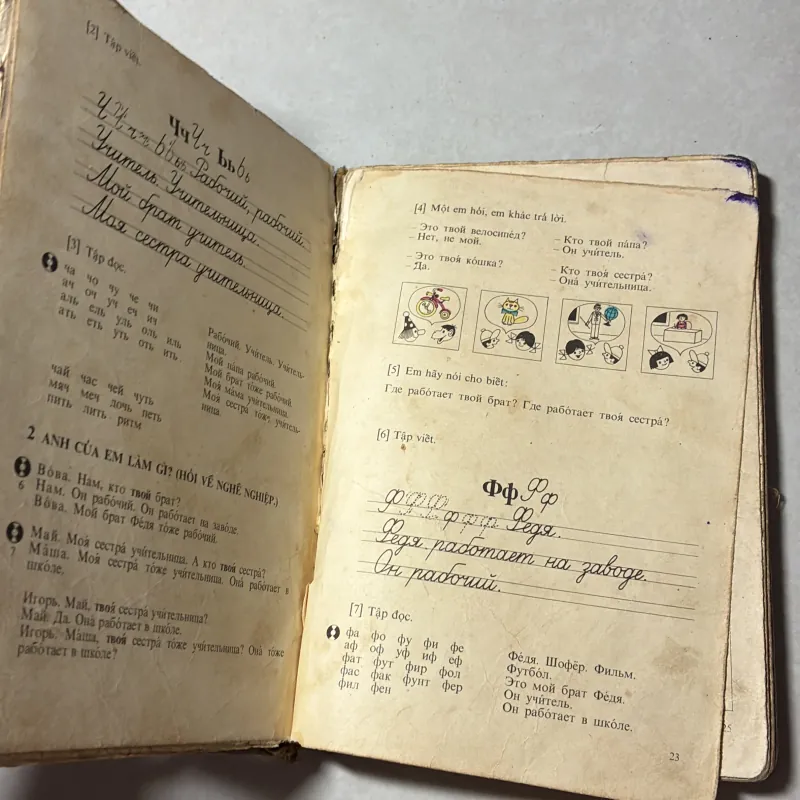 [2] Tập viết.
Чч Чч Ьь ь ь
Ч Ч Ч ч ч ь ь ь Рабочий, рабочий.
Учитель. Учительница.
Мой брат учитель.
Моя сестра учительница.
[3] Tập đọc.
ча чо чу че чи
ач оч уч еч ич
аль ель уль оль иль
ать еть уть оть ить
Рабо́чий. Учи́тель. Учи́тель-
ница.
Мой па́па рабо́чий.
Мой брат то́же рабо́чий.
Моя́ ма́ма учи́тельница.
Моя́ сестра́ то́же учи́тель-
ница.
чай час чей чуть
мяч меч дочь петь
пить лить ритм
2 ANH CỦA EM LÀM GÌ? (HỎI VỀ NGHỀ NGHIỆP.)
Во́ва. Нам, кто твой брат?
6 Нам. Он рабо́чий. Он рабо́тает на заво́де.
Во́ва. Мой брат Фе́дя то́же рабо́чий.
Май. Моя́ сестра́ учи́тельница. А кто твоя́ сестра́?
7 Ма́ша. Моя́ сестра́ то́же учи́тельница. Она́ рабо́тает в
шко́ле.
Игорь. Май, твоя́ сестра́ учи́тельница?
Май. Да. Она́ рабо́тает в шко́ле.
Игорь. Ма́ша, твоя́ сестра́ то́же учи́тельница? Она́ то́же
рабо́тает в шко́ле?
[4] Một em hỏi, em khác trả lời.
– Это твой велосипе́д?
– Нет, не мой.
– Кто твой па́па?
– Он учи́тель.
– Это твоя́ ко́шка?
– Да.
– Кто твоя́ сестра́?
– Она́ учи́тельница.
[5] Em hãy nói cho biết:
Где рабо́тает твой брат? Где рабо́тает твоя́ сестра́?
[6] Tập viết.
Фф Фф
Ф Ф Ф ф ф ф Федя.
Федя работает на заводе.
Он рабочий.
[7] Tập đọc.
фа фо фу фи фе
аф оф уф иф еф
фат фут фир фол
фас фак фунт фер
фил фен
Фе́дя. Шофёр. Фильм.
Футбо́л.
Это мой брат Фе́дя.
Он учи́тель.
Он рабо́тает в шко́ле.
23